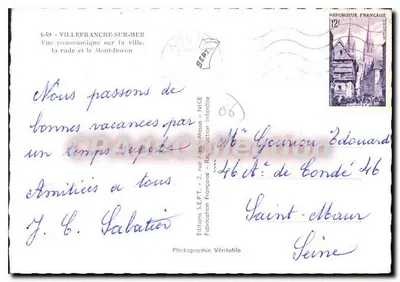 4-49 - VILLEFRANCHE-SUR-MER
Vue panoramique sur la ville,
la rade et le Mont-Boron
SEPT
RÉPUBLIQUE FRANÇAISE
12F
Nous passons de
bonnes vacances par
un temps superbe
Amitiés a tous
J. C. Sabatier
Editions S.E.P.T. - 2, rue - NICE
Fabrication Française - Reproduction interdite
06
Mr Gouriou Edouard
46 Ave de Condé 46
Saint-Maur
Seine
Photographie Véritable